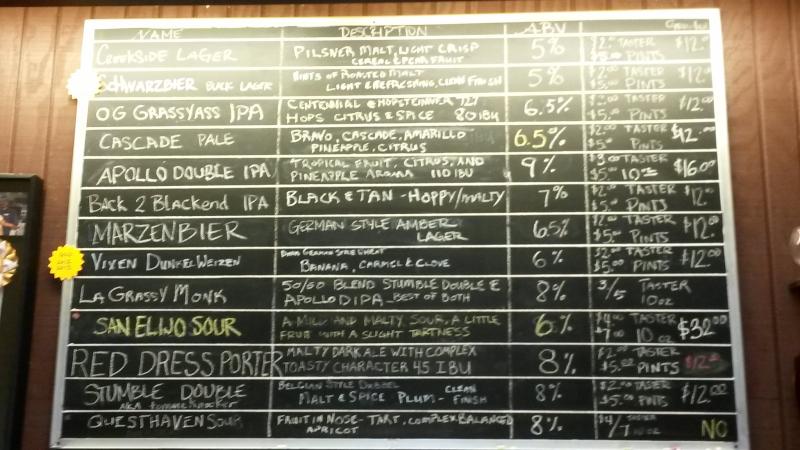 NAME DESCRIPTION ABV
CREEKSIDE LAGER PILSNER MALT, LIGHT CRISP 5% $2.00 TASTER $12.00
CEREAL & PEAR FRUIT $5.00 PINTS
SCHWARZBIER BLACK LAGER HINTS OF ROASTED MALT 5% $2.00 TASTER $12
LIGHT & REFRESHING, CLEAN FINISH $5.00 PINTS
OG GRASSYASS IPA CENTENNIAL & HOPSTEINNER 727 6.5% TASTER $12.00
HOPS CITRUS & SPICE 80 IBU $5.00 PINTS
CASCADE PALE BRAVO, CASCADE, AMARILLO 6.5% $2.00 TASTER $12.00
PINEAPPLE, CITRUS $5.00 PINT
APOLLO DOUBLE IPA TROPICAL FRUIT, CITRUS, AND 9% $3.00 TASTER $16.00
PINEAPPLE AROMA 110 IBU $5.00 10oz
BACK 2 BLACKEND IPA BLACK & TAN - HOPPY/MALTY 7% $2.00 TASTER $12.00
$5.00 PINTS
MARZENBIER GERMAN STYLE AMBER 6.5% $2.00 TASTER $12.00
LAGER $5.00 PINTS
VIXEN DUNKELWEIZEN GERMAN STYLE WHEAT 6% $2.00 TASTER $12.00
BANANA, CARMEL & CLOVE $5.00 PINTS
LA GRASSY MONK 50/50 BLEND STUMBLE DOUBLE & 8% 3/5 TASTER
APOLLO DIPA - BEST OF BOTH 10oz
SAN ELIJO SOUR A MILD AND MALTY SOUR, A LITTLE 6% $4.00 TASTER $32.00
FRUIT WITH A SLIGHT TARTNESS $7.00 10 oz
RED DRESS PORTER MALTY DARK ALE WITH COMPLEX 8% $2.00 TASTER $12.00
TOASTY CHARACTER 45 IBU $5.00 PINTS
STUMBLE DOUBLE BELGIAN STYLE DUBBEL CLEAN 8% $2.00 TASTER $12.00
AKA MALT & SPICE PLUM - FINISH $5.00 PINTS
QUESTHAVEN SOUR FRUIT IN NOSE - TART, COMPLEX BALANCED 8% $4/ TASTER NO
APRICOT 7 10 oz